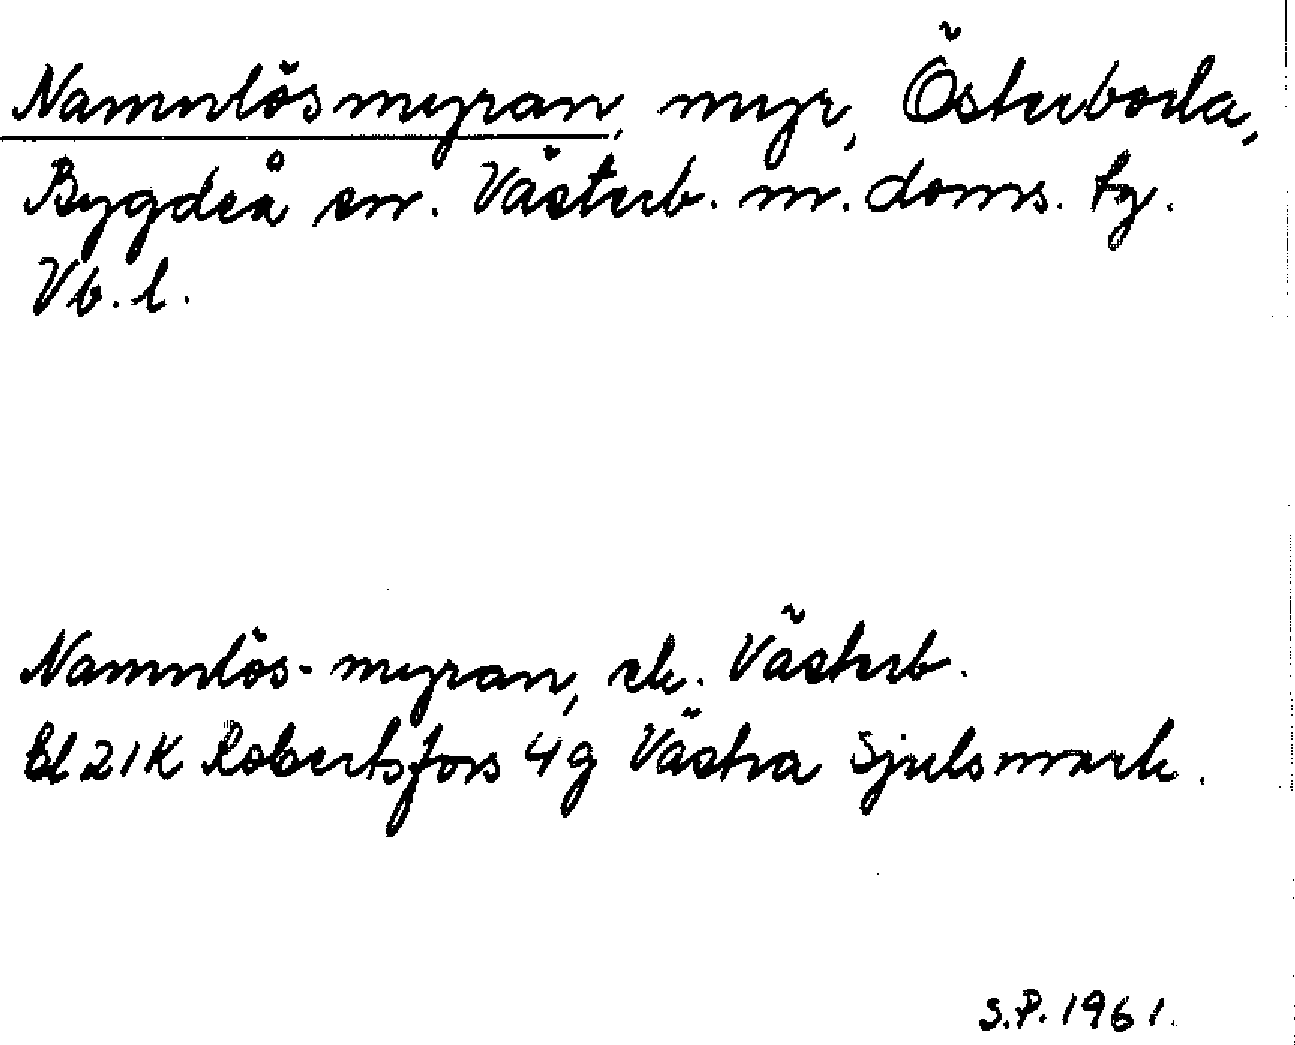 Namnlösmyran, myr, Österboda,
Bygdeå sn. Västerb. m. doms. tg.
Vb. l.
Namnlös-myran, ek. Västerb.
Bl 21K Robertsfors 4g Västra Sjulsmark.
S.P. 1961.